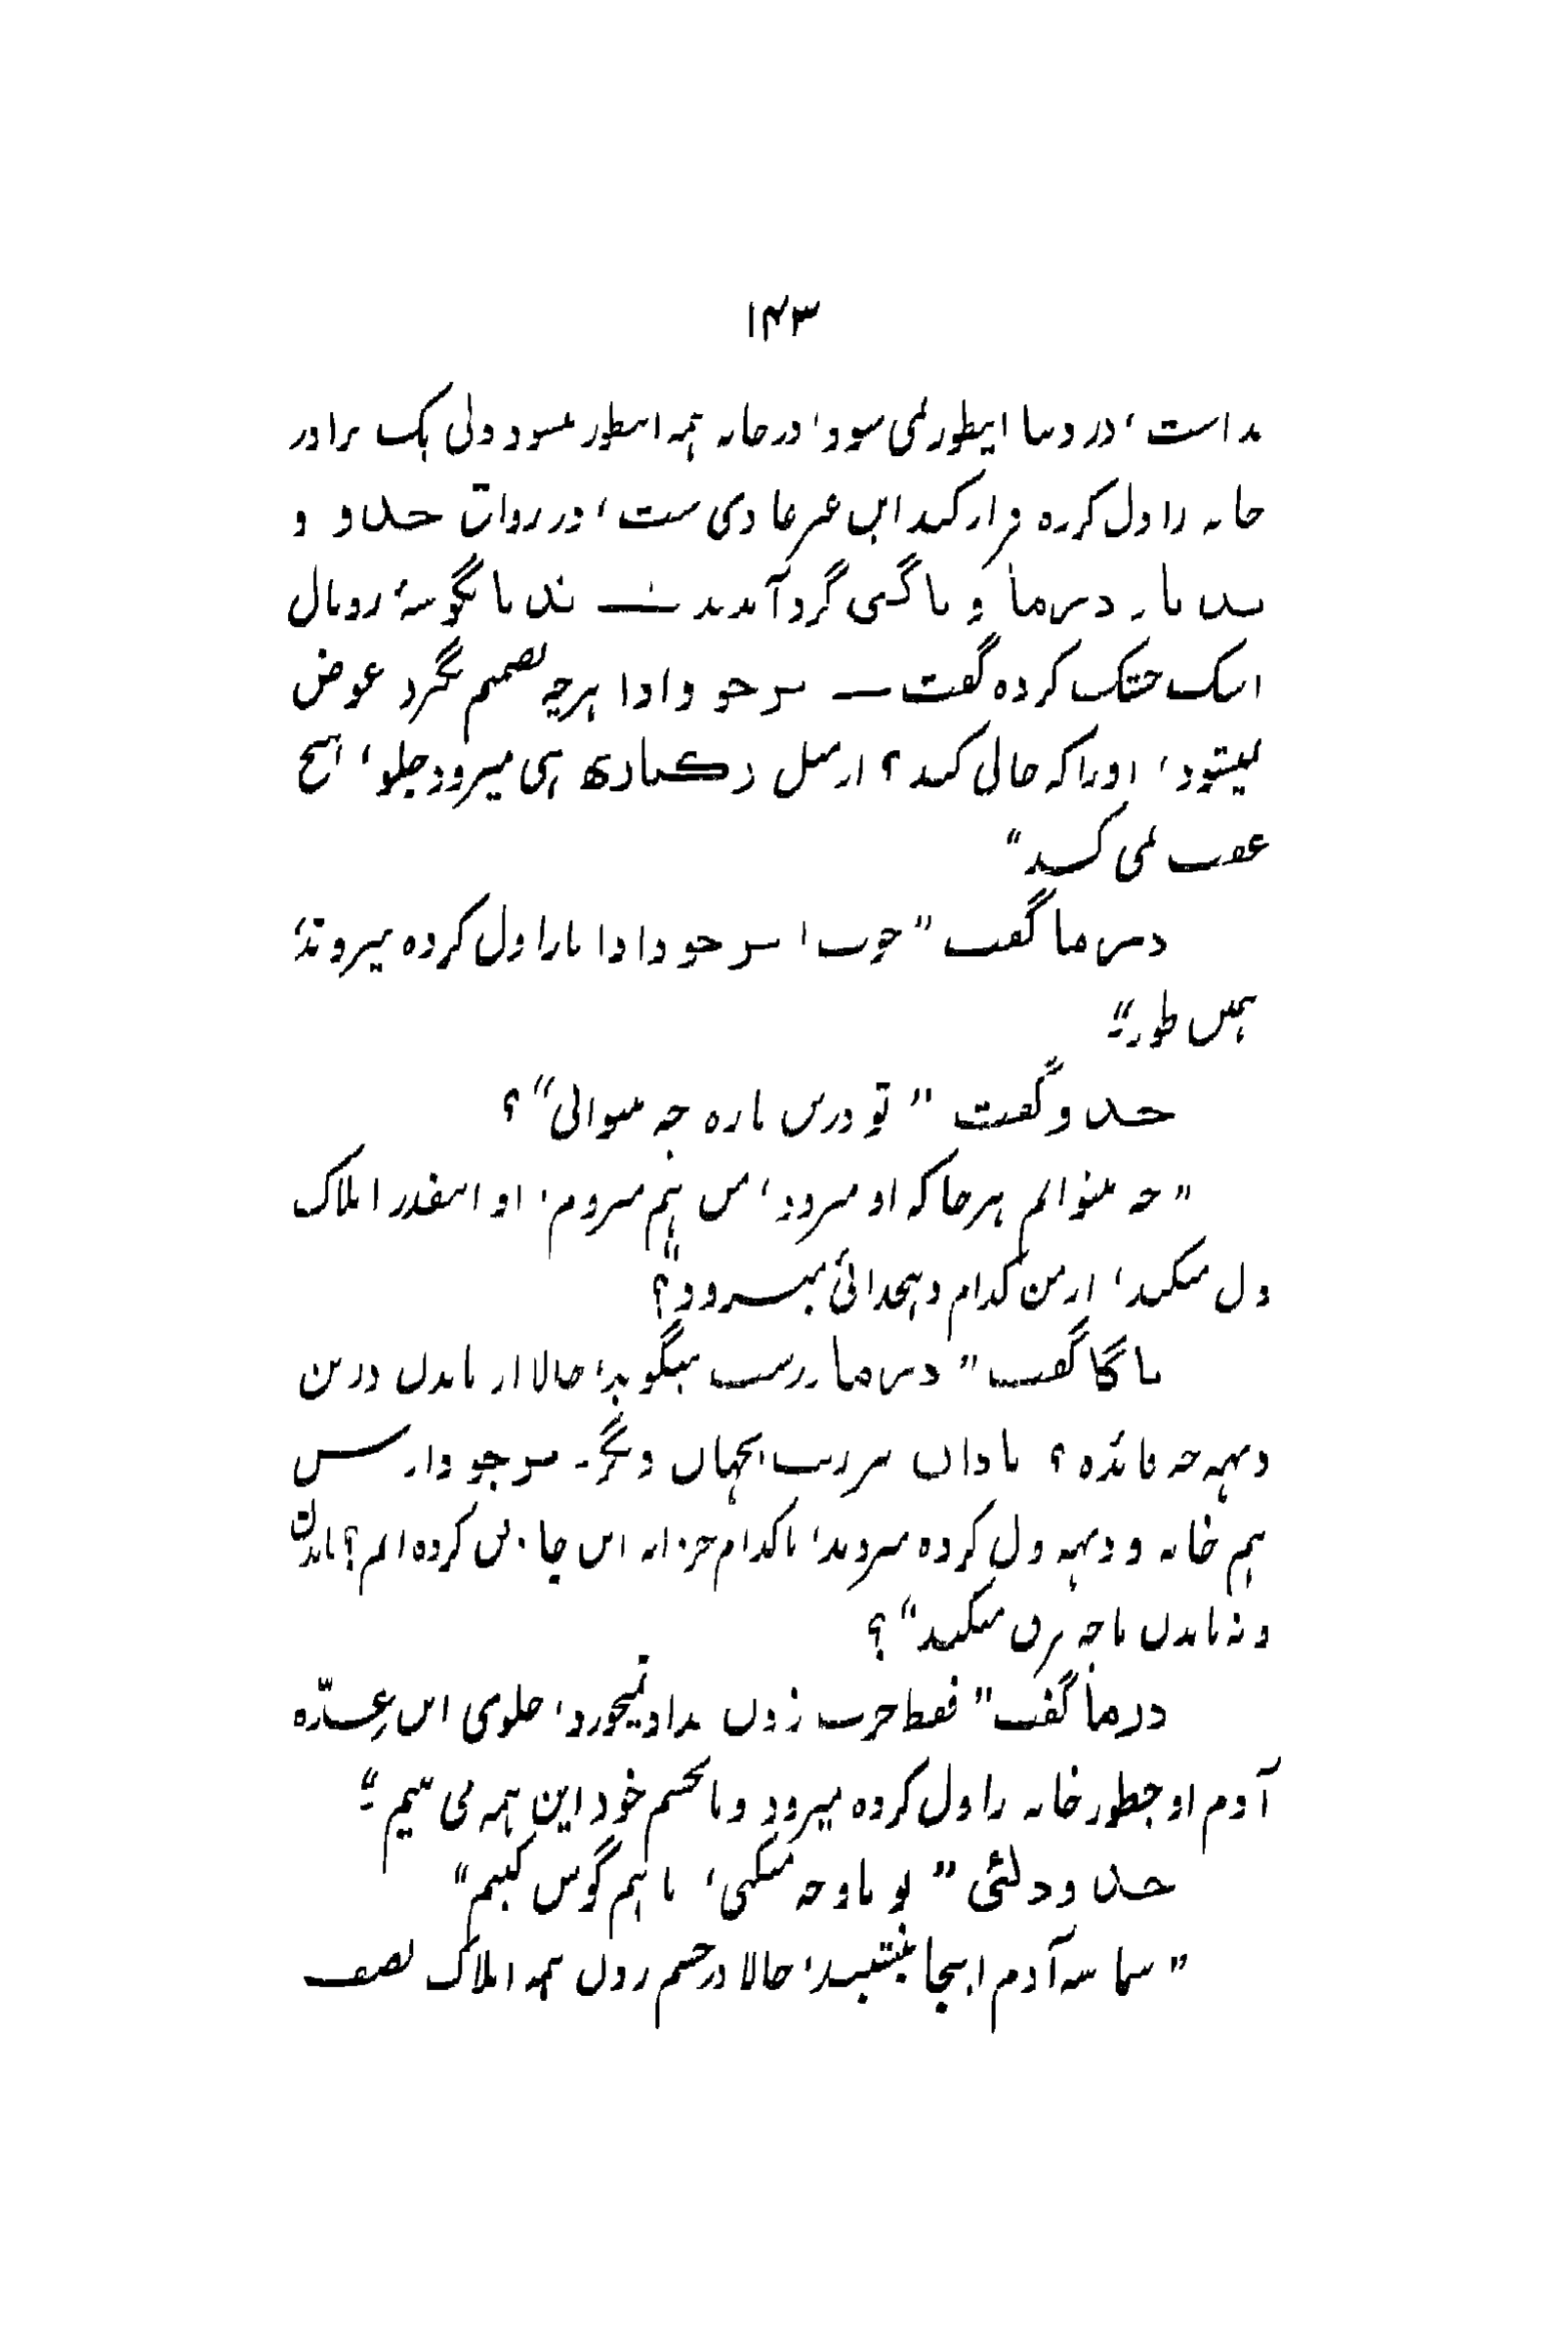 ۱۴۳
بد است، در دنیا اینطور نمی شود، در خانه همه اینطور میشود ولی یک برادر
خانه را ول کرده فرار کند این غیر عادی ست، در رواق حدن و و
بدن بار دین ما و باگتی گرد آمدند — بدن با گوشهٔ رومال
اشک خشک کرده گفت — برجو دادا هرچه تصمیم بگیرد عوض
نمیشود، او را که حالی کند؟ از مثل هی میرود جلو، هیچ
عقب نمی کشد"
دین ما گفت "خوب، برجو دادا ما را ول کرده میروند،
همین طور؟"
حدن و گفت "تو درین باره چه میدانی"؟
"چه میدانم هرجا که او میرود، من هم میروم، او اینقدر املاک
ول میکند، از من کدام دهخدائی میرود"؟
باگا گفت "دین ما درست میگوید، حالا از ماندن درین
دهه چه فائده؟ نادان یر رب بجهان دگر۔ برجو دارش
هم خانه و دهه ول کرده میروند، ما کدام خزانه این جا دفن کرده ایم؟ ماندن
و نه ماندن ما چه فرق میکند"؟
درما گفت "فقط حرف زدن بداد نمیخورد، جلوی این عدّه
آدم او چطور خانه را ول کرده میرود و ما بچشم خود این همه می بینیم؟"
حدن و دلتئی "تو با او چه میکنی، ما هم گوش کنیم"
"شما سه آدم اینجا هستید، حالا در چشم زدن همه املاک نصف